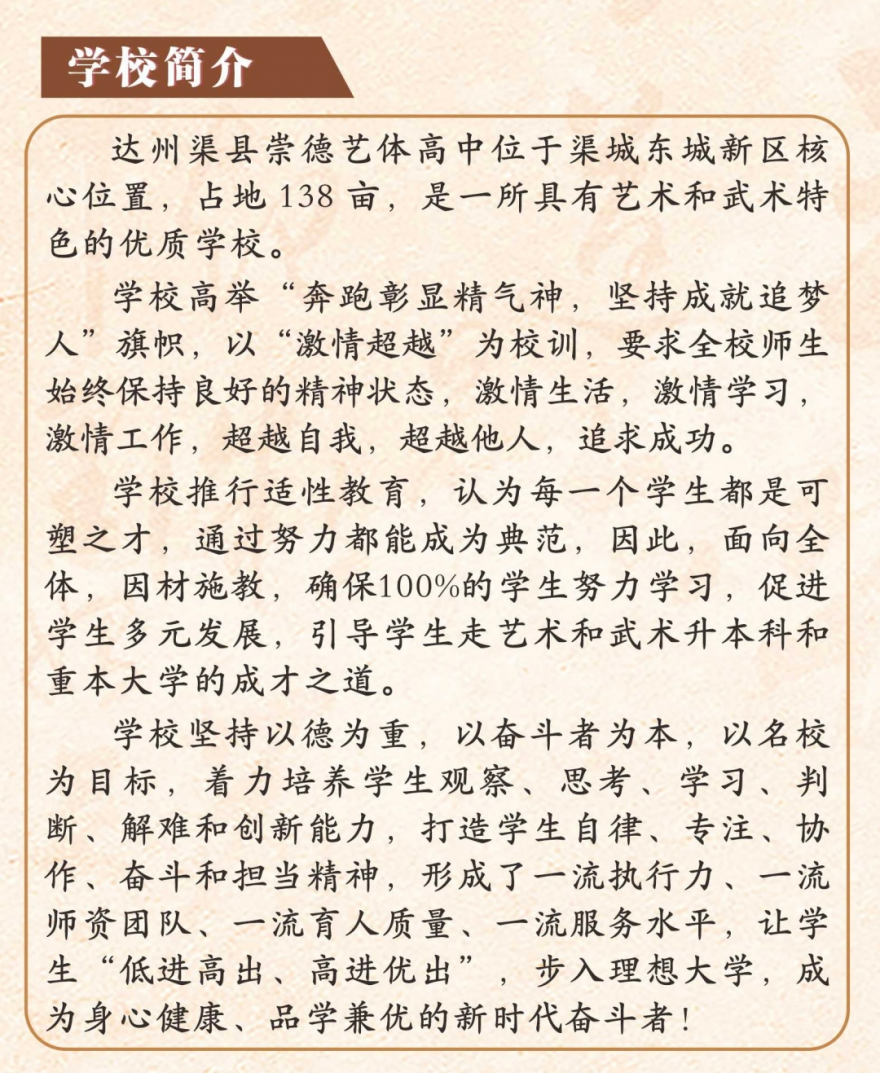 学校简介
达州渠县崇德艺体高中位于渠城东城新区核
心位置，占地 138 亩，是一所具有艺术和武术特
色的优质学校。
学校高举“奔跑彰显精气神，坚持成就追梦
人”旗帜，以“激情超越”为校训，要求全校师生
始终保持良好的精神状态，激情生活，激情学习，
激情工作，超越自我，超越他人，追求成功。
学校推行适性教育，认为每一个学生都是可
塑之才，通过努力都能成为典范，因此，面向全
体，因材施教，确保100%的学生努力学习，促进
学生多元发展，引导学生走艺术和武术升本科和
重本大学的成才之道。
学校坚持以德为重，以奋斗者为本，以名校
为目标，着力培养学生观察、思考、学习、判
断、解难和创新能力，打造学生自律、专注、协
作、奋斗和担当精神，形成了一流执行力、一流
师资团队、一流育人质量、一流服务水平，让学
生“低进高出、高进优出”，步入理想大学，成
为身心健康、品学兼优的新时代奋斗者！